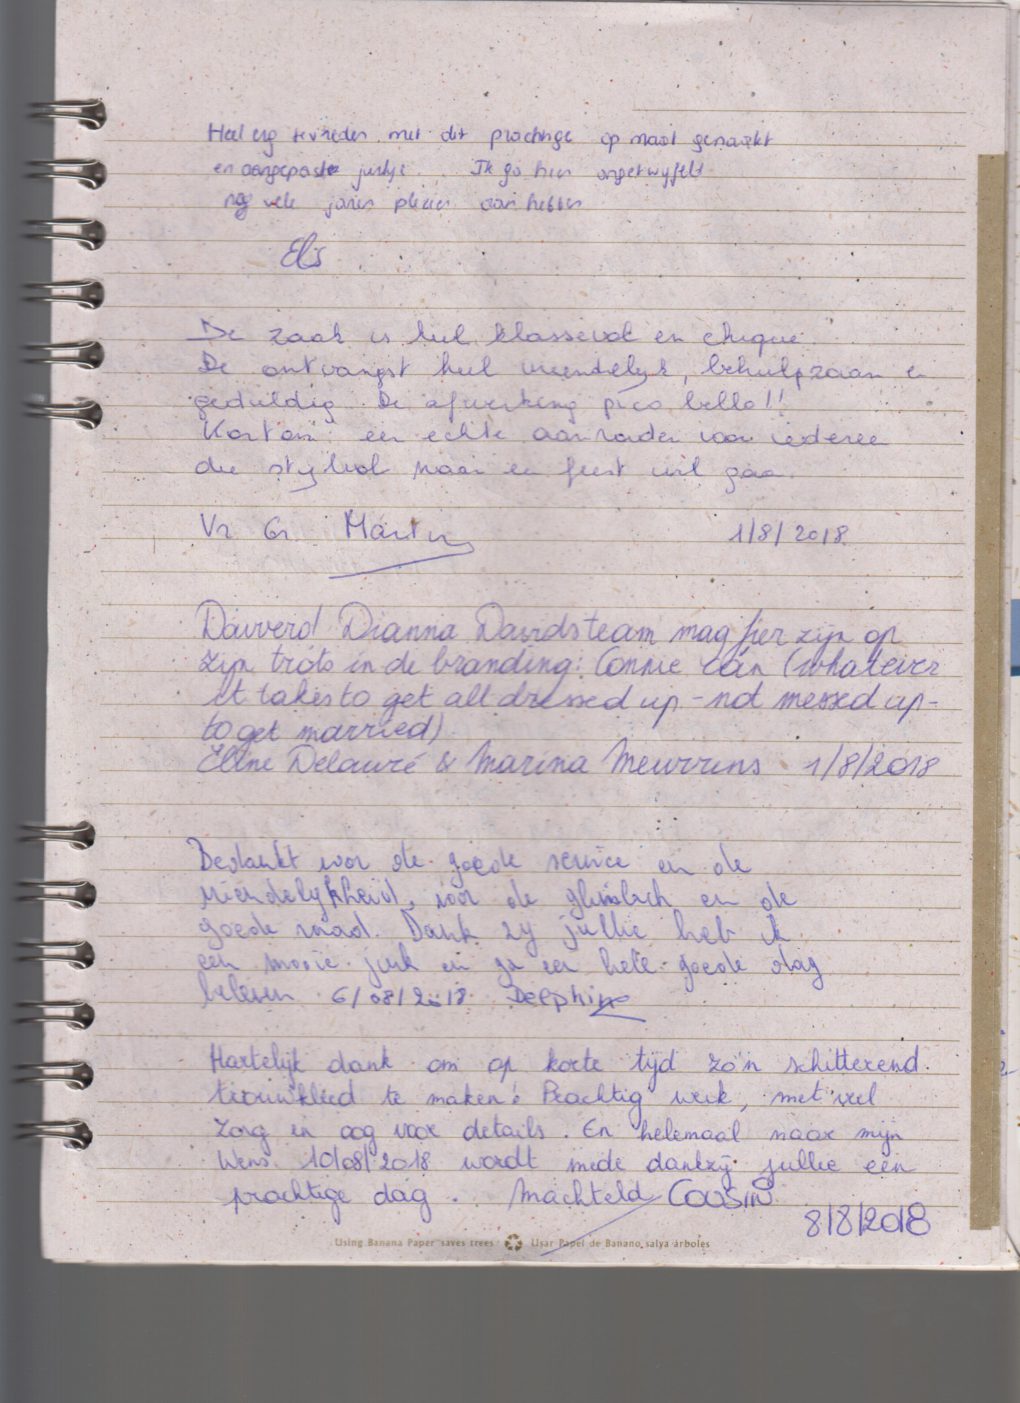 Heel erg tevreden met dit prachtige op maat gemaakt
en aangepaste jurkje. Ik ga hier ongetwijfeld
nog vele jaren plezier aan hebben
Els
De zaak is heel klassevol en chique
De ontvangst heel vriendelijk, behulpzaam en
geduldig. De afwerking pico bello!!
Kortom: een echte aanrader voor iedereen
die stijlvol naar een feest wil gaan.
Vr Gr. Martin
1/8/2018
Dianna Davidsteam mag fier zijn op
zijn trots in de branding: Connie (whatever
it takes to get all dressed up - not messed up -
to get married)
Eline & Marina 1/8/2018
Bedankt voor de goede service en de
vriendelijkheid, voor de glimlach en de
goede raad. Dank zij jullie heb ik
een mooie jurk en ga een hele goede dag
beleven 6/08/2018 Delphine
Hartelijk dank om op korte tijd zo'n schitterend
trouwkleed te maken! Prachtig werk, met veel
zorg en oog voor details. En helemaal naar mijn
wens. 10/08/2018 wordt mede dankzij jullie een
prachtige dag. Machteld COUSIN
8/8/2018
Using Banana Paper saves trees Usar Papel de Banano salva árboles